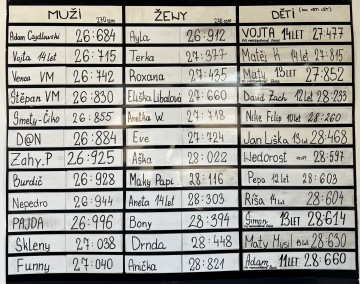 MUŽI
270ccm
Adam Czudlowski 26:684
Vojta 14let 26:715
Venca VM 26:742
Štěpán VM 26:830
Smety-Čiho 26:855
D@N 26:884
Zahy.P 26:925
Burdič 26:928
Nepedro 26:944
PAJDA 26:996
Skleny 27:038
Funny 27:040
ŽENY
Ayla 26:912
Terka 27:377
Roxana 27:435
Eliška Libalová 27:660
Anetka W. 27:718
Eve 27:724
Aška 28:022
Maky Papi 28:116
Aneta 14let 28:303
Bony 28:394
Drnda 28:448
Anička 28:821
DĚTI
VOJTA 14LET 27:477
Matěj K 14let 27:815
Maty 13LET 27:852
David Zach 12let 28:233
Mike Filip 10let 28:260
Jan Liška 28:468
Wedorost 28:597
Pepa 12let 28:603
Ríša 14let 28:604
Šimon 13LET 28:614
Maty Musil 28:630
Adam 11LET 28:660